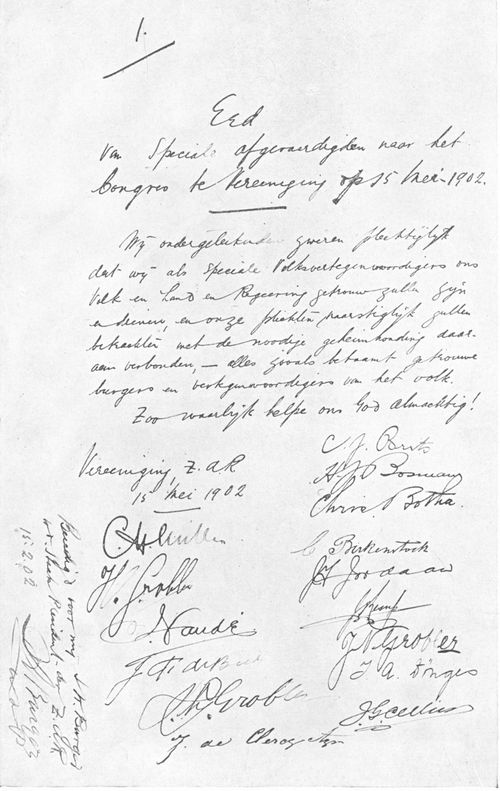 1.
Eed
Van Speciale afgevaardigden naar het
Congres te Vereeniging op 15 Mei 1902.
Wij ondergeteekenden zweren plechtiglijk
dat wij als speciale Volksvertegenwoordigers ons
Volk en Land en Regeering getrouw zullen zijn
en dienen, en onze plichten naarstiglijk zullen
betrachten met de noodige geheimhouding daar-
aan verbonden, — alles zooals betaamt getrouwe
burgers en vertegenwoordigers van het volk.
Zoo waarlijk helpe ons God Almachtig!
Vereeniging, Z.A.R.
15 Mei 1902
C. J.
H. Grobler
Naudé
J. F. de
Grobler
J. de Clercq
C. J. Brits
Bosman
Chris Botha
C Birkenstock
Jordaan
Kemp
J N Grobler
J. A. Dönges
J. G. Cellius
Beëdigd voor mij S. W. Burger
President der Z.A.R
15.
Burger